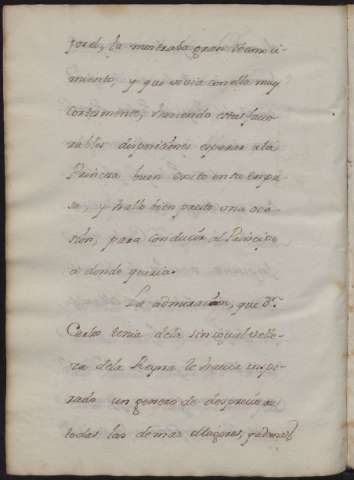 por el, la mostraba gran
miento, y que vivia con ella muy
Cortesmente; haviendo estas favo
rables disposiciones esperar a la
Princesa buen exito en su empre
sa, y hallo bien presto una oca
sión, para conducir al Principe
a donde queria.
La admiracion, que Dn.
Carlos tenia de la sin igual velle
za de la Reyna le havia inspi
rado un genero de desprecio a
todas las demas Mugeres,